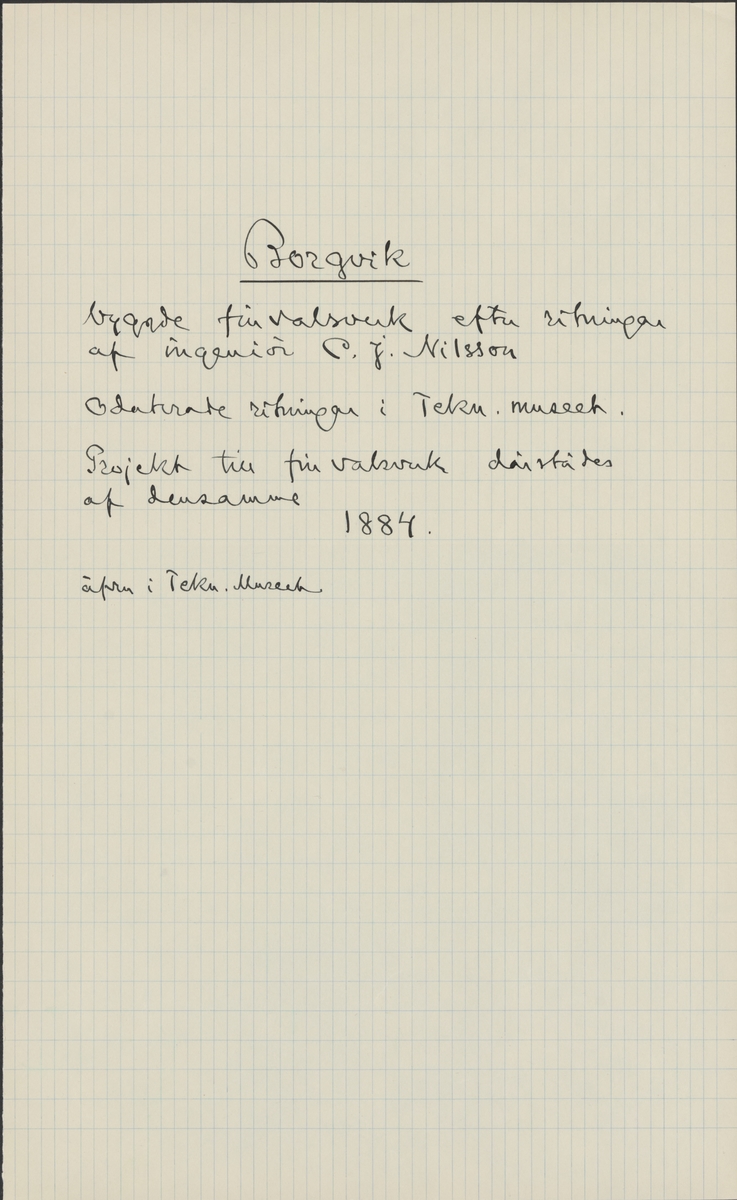 Borgvik
byggde finvalsverk efter ritningar
af ingeniör C. J. Nilsson
Odaterade ritningar i Tekn. museet.
Projekt till finvalsverk därstädes
af densamme
1884.
äfven i Tekn. Museet